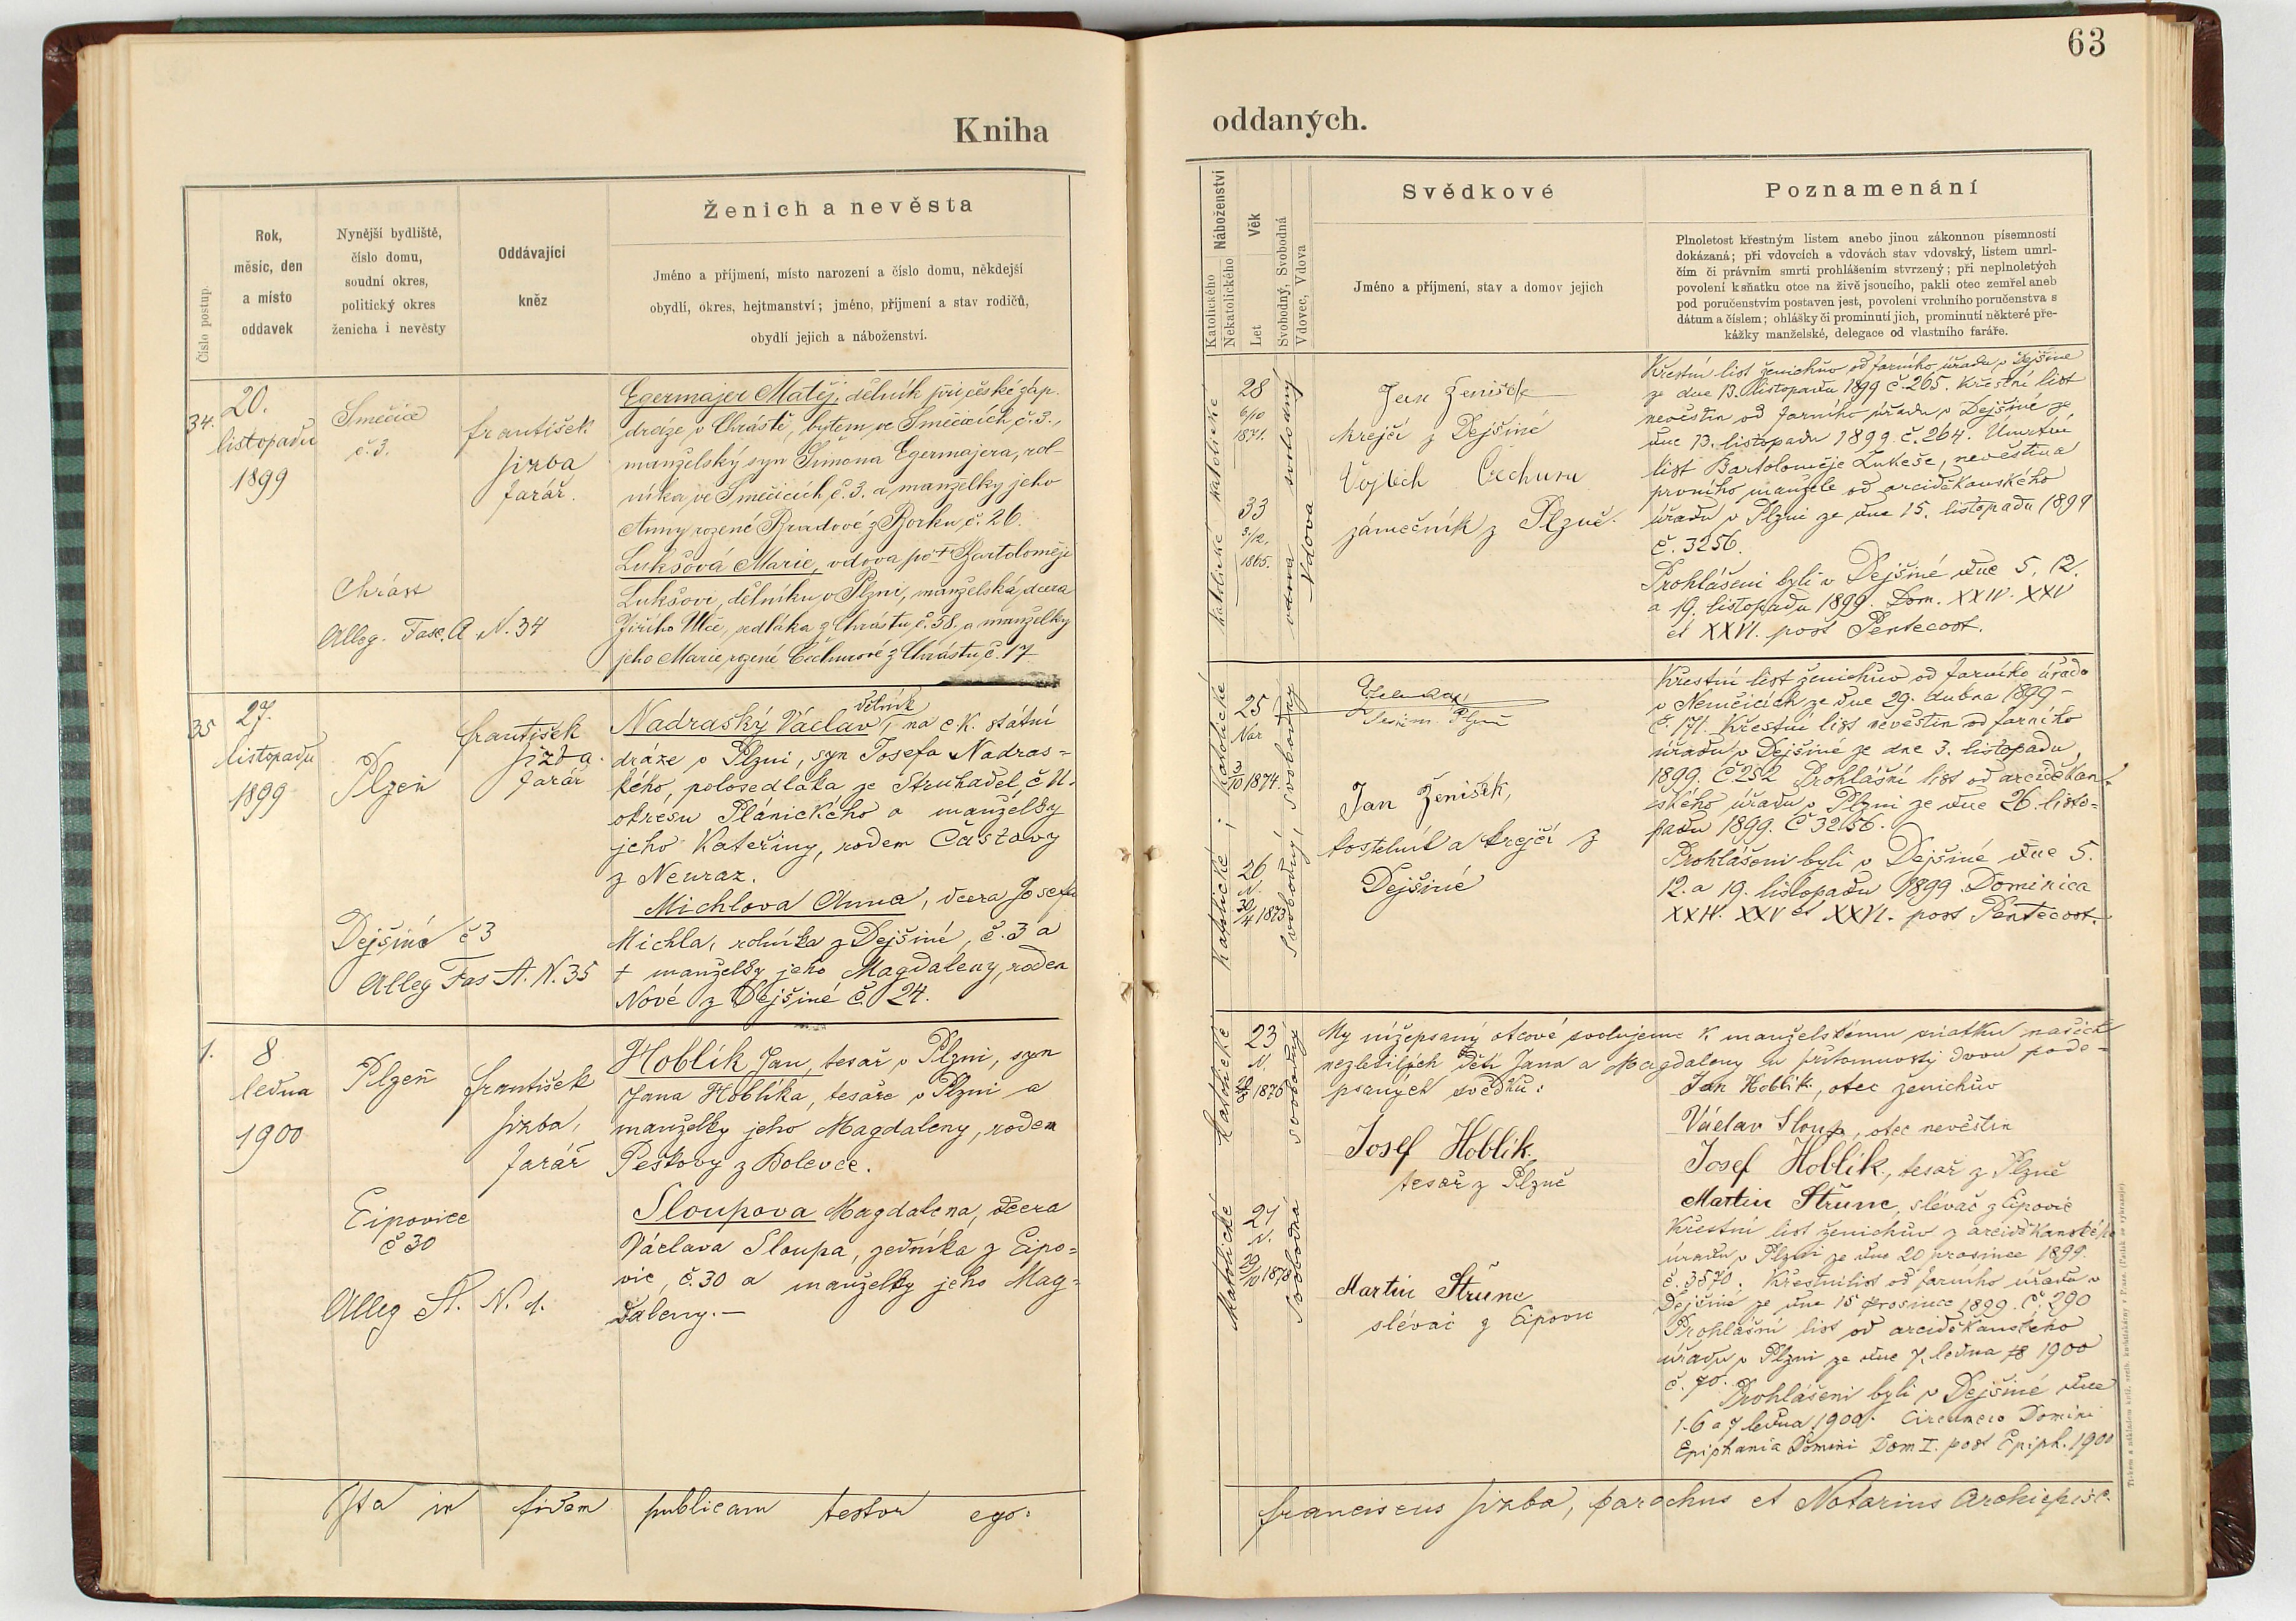 63
Kniha
oddaných.
Číslo postup.
Rok,
měsíc, den
a místo
oddavek
Nynější bydliště,
číslo domu,
soudní okres,
politický okres
ženicha i nevěsty
Oddávající
kněz
Ženich a nevěsta
Jméno a příjmení, místo narození a číslo domu, někdejší
obydlí, okres, hejtmanství; jméno, příjmení a stav rodičů,
obydlí jejich a náboženství.
34.
20.
listopadu
1899
Smečice
č. 3.
František
Jizba
farář.
Egermajer Matěj, dělník při české záp.
dráze v Chrásti, bytem ve Smečicích, č. 3.,
manželský syn Šimona Egermajera, rol-
níka ve Smečicích, č. 3. a manželky jeho
Anny rozené z Borku, č. 26.
Lukšová Marie, vdova po † Bartoloměji
Lukšovi, dělníku v Plzni, manželská dcera
Jiřího sedláka z Chrástu, č. 58. a manželky
jeho Marie, rozené Čechurové z Chrástu, č. 17
Chrást
Alleg. Fasc. A N. 34
35
27.
listopadu
1899
Plzeň
František
Jizba.
farář
dělník
Nadraský Václav na c. k. státní
dráze v Plzni, syn Josefa Nadras=
kého, polosedláka ze Struhadel, č 11.
okresu Plánického a manželky
jeho Kateřiny, rodem Částovy
z Neuraz.
Michlova Anna, dcera Josefa
Michla, rolníka z Dejšiné, č. 3 a
† manželky jeho Magdaleny, rodem
Nové z Dejšiné č. 24.
Dejšiné č 3
Alleg Fas A. N. 35
1.
8
ledna
1900
Plzeň
František
Jizba,
farář
Hoblík Jan, tesař v Plzni, syn
Jana Hoblíka, tesaře v Plzni a
manželky jeho Magdaleny, rodem
Peškovy z Bolevce.
Eipovice
č 30
Sloupova Magdalena, dcera
Václava Sloupa, zedníka z Eipo=
vic, č. 30 a manželky jeho Mag=
daleny. —
Alleg A. N. 1.
Ita in fidem publicam testor ego:
Katolického
Nekatolického
Náboženství
Let
Věk
Svobodný, Svobodná
Vdovec, Vdova
Svědkové
Jméno a příjmení, stav a domov jejich
Poznamenání
Plnoletost křestným listem anebo jinou zákonnou písemností
dokázaná; při vdovcích a vdovách stav vdovský, listem umrl-
čím či právním smrti prohlášením stvrzený; při neplnoletých
povolení k sňatku otce na živě jsoucího, pakli otec zemřel aneb
pod poručenstvím postaven jest, povolení vrchního poručenstva s
dátum a číslem; ohlášky či prominutí jich, prominutí některé pře-
kážky manželské, delegace od vlastního faráře.
katolické katolické
28
6/10
1871.
33
1865.
svobodný
vdova
Jan Ženíšek
krejčí z Dejšiné
Vojtěch Čechura
zámečník z Plzně.
Křestní list ženichův od farního úřadu v Dejšiné
ze dne 13. listopadu 1899 č. 265. Křestní list
nevěstin od farního úřadu v Dejšiné ze
dne 13. listopadu 1899. č. 264. Úmrtní
list Bartoloměje Lukeše, nevěstina
prvního manžele od arciděkanského
úřadu v Plzni ze dne 15. listopadu 1899
č. 3256.
Prohlášeni byli v Dejšiné dne 5, 12.
a 19. listopadu 1899. Dom. XXIV. XXV
et XXVI. post Pentecost.
katolické; katolické
25
Nar
3/10 1874.
26
N.
30/4 1873
svobodný, svobodný
Plzně
Jan Ženíšek,
kostelník a krejčí z
Dejšiné
Křestní list ženichův od farního úřadu
v Nemčicích ze dne 29. dubna 1899 –
č. 171. Křestní list nevěstin od farního
úřadu v Dejšiné ze dne 3. listopadu,
1899. Č 252 Prohlášní list od arciděkan.
ského úřadu v Plzni ze dne 26. listo=
padu 1899. Č 3256.
Prohlášeni byli v Dejšiné dne 5.
12. a 19. listopadu 1899. Dominica
XXIV. XXV et XXVI. post Pentecost.
katolické katolické
23
N.
1876
21
N.
1878
svobodný svobodná
My nížepsaný otcové svolujeme k manželskému sňatku našich
nezletilých dětí Jana a Magdaleny u přítomnosti dvou pode=
psaných svědků:
Josef Hoblík.
tesař z Plzně
Martin Štrunc
slévač z Eipovic
Jan Hoblík, otec ženichův
Václav Sloup, otec nevěstin
Josef Hoblík, tesař z Plzně
Martin Štrunc, slévač z Eipovic
Křestní list ženichův z arciděkanského
úřadu v Plzni ze dne 20 prosince 1899.
č. 3570. Křestní list od farního úřadu v
Dejšiné ze dne 15 prosince 1899. č. 290
Prohlášní list od arciděkanského
úřadu v Plzni ze dne 7. ledna 1900
č. 70.
Prohlášeni byli v Dejšiné dne
1. 6 a 7 ledna 1900. Circumcis Domini
Epiphania Domini Dom I. post Epiph. 1900
Franciscus Jizba, parochus et Notarius Archiepisc.